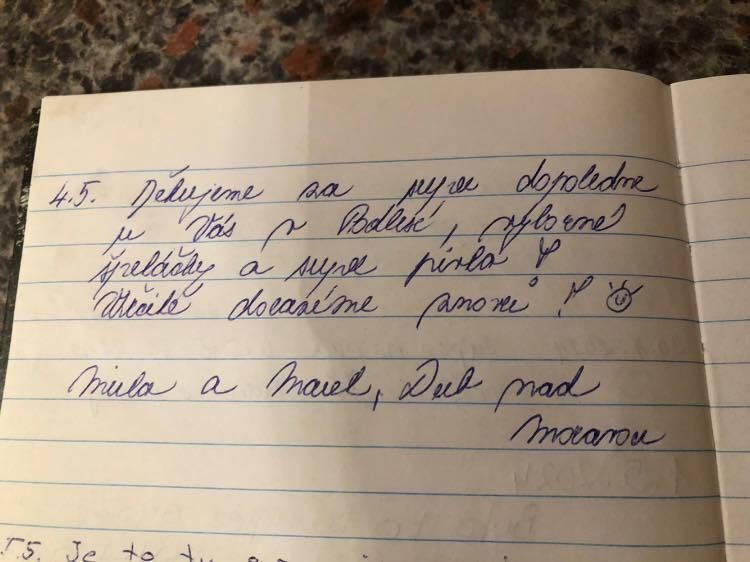 4.5. Děkujeme za super dopoledne
u Vás v Podlesí, výborné
špekáčky a super pivka!
Určitě dorazíme znovu! ☺
a Marek, Dub nad
Moravou
5. Je to tu